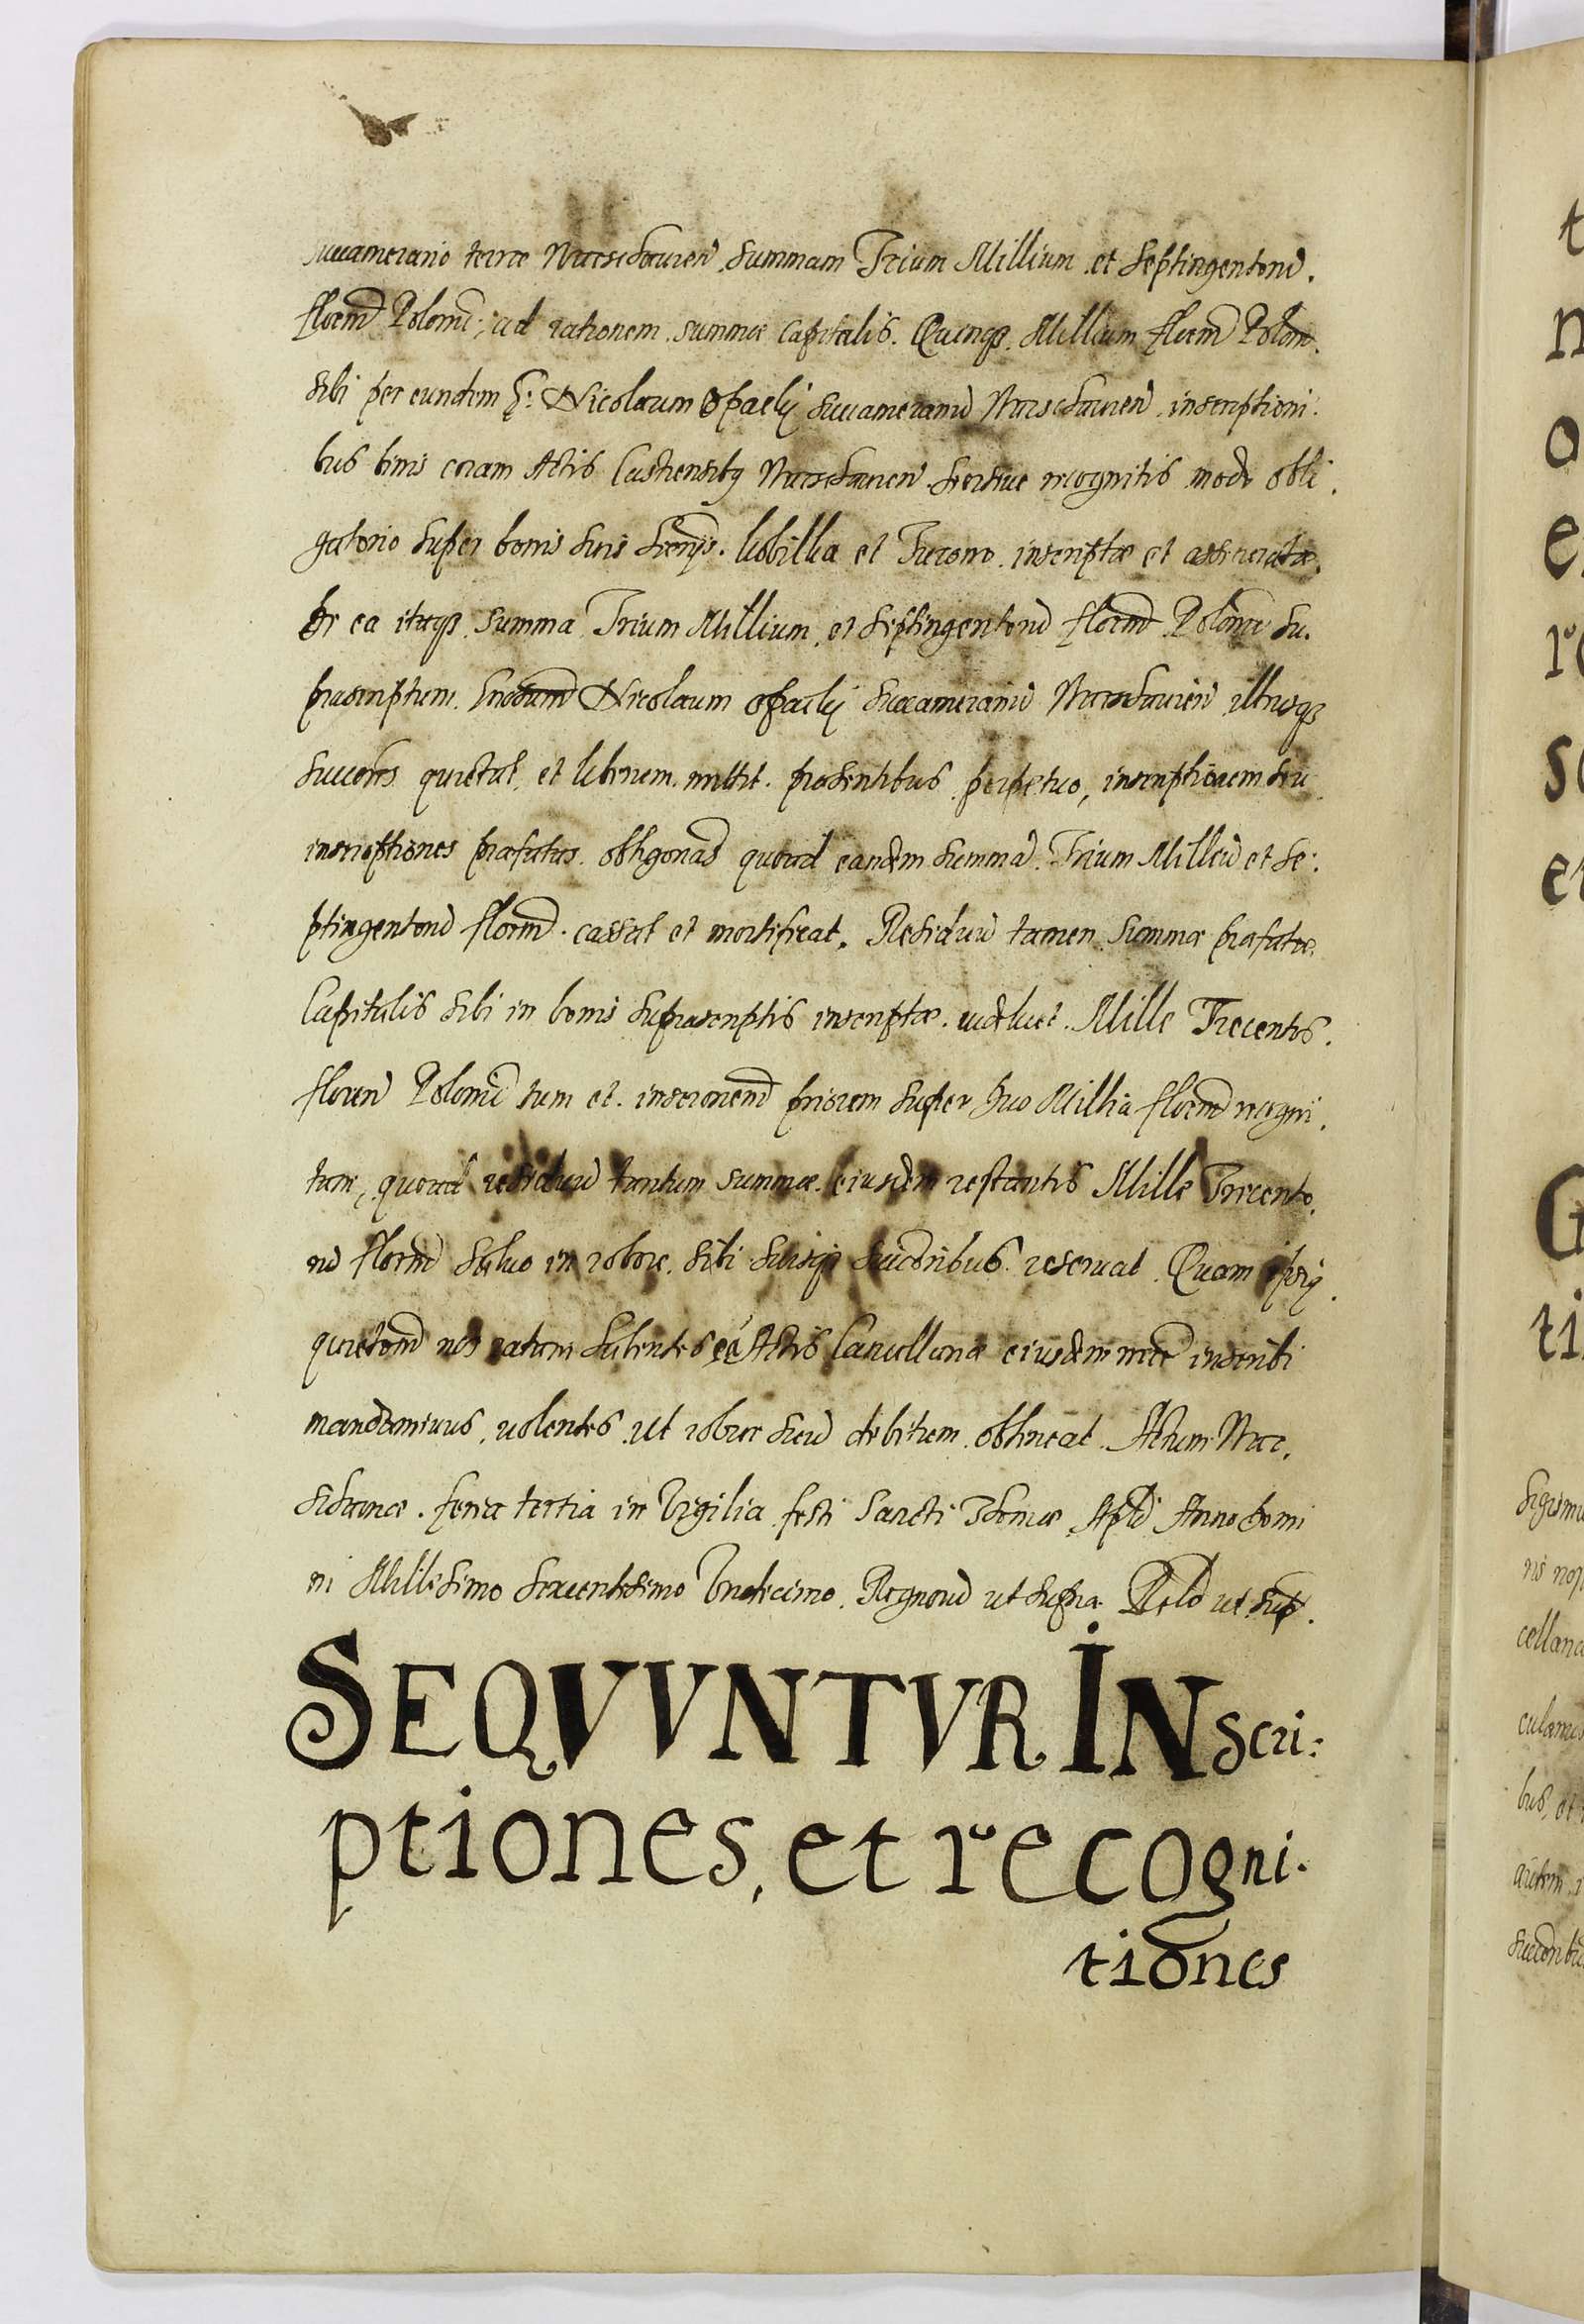 succamerario terræ Warschauien̄. Summam Trium Millium et Septingentorū.
floren̄ Polonic; ad rationem summæ Capitalis. Quinq3. Millium floren̄ Polon̄.
sibi per eundem G: Nicolaum Opacky succamerariū Warschauien̄. inscriptioni.
bus binis coram Actis Castrensibꝫ Warschauien̄ seorsiue recognitis modo obli.
gatorio super bonis suis et Iurono inscriptæ et assecuratæ.
De ea itaq3 summa Trium Millium et Septingentorū floren̄ Polonic su.
prascriptum Nicolaum Opacky succamerariū Warschauien̄ illiusq3
succores quietat, et liberum mittit præsentibus perpetuo, inscriptionem seu
inscriptiones præfatas obligorias quoad eandem summā. Trium Milliū et Se:
ptingentorū floren̄. cassat et mortificat. Residuū tamen Summæ præfatæ.
Capitalis sibi in bonis suprascriptis inscriptæ. uidelicet. Mille Trecentos.
floren̄ Polonic tum et inscrionem priorem super Duo Millia floren̄ recogni.
tam, quoad residuū tantum summæ eiusdem restantis Mille Trecento.
rū floren̄ saluo in robore sibi suisq3 succoribus reseruat. Quam ipsiꝫ
quietonem nos ratam habentes eā Actis Cancellariæ eiusdem nrae inscribi
mandauimus, uolentes ut robur suū debitum obtineat. Actum War.
schauiæ. feria tertia in Vigilia festi Sancti Thomæ Apli Anno Domi
ni Millesimo Sexcentesimo Vndecimo. Regnorū ut supra Relo ut sup.
SEQVVNTVR INscri:
ptiones, et recogni.
tiones
t
n
o
e
r
s
e
G
ti
Sigismu
nis nos
cellaria
culam
bus, et
autem
succorib